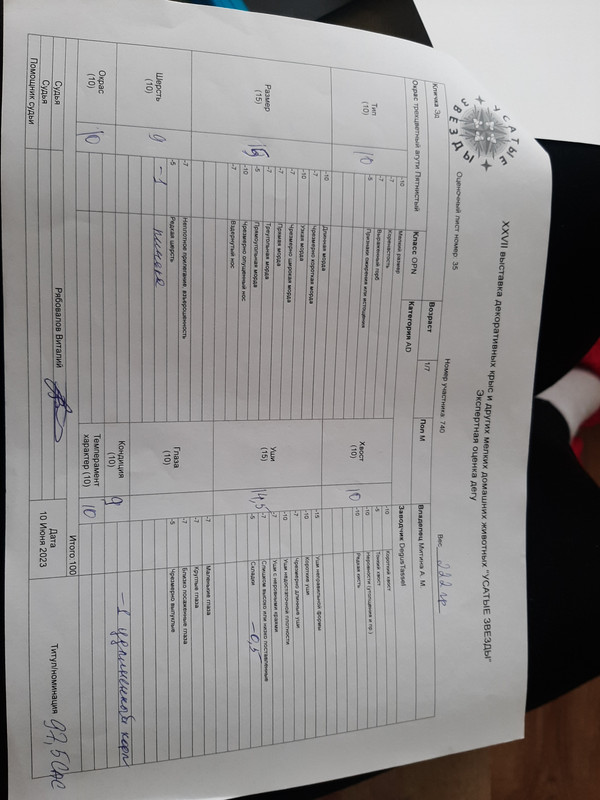 УСАТЫЕ ЗВЕЗДЫ
XXVII выставка декоративных крыс и других мелких домашних животных "УСАТЫЕ ЗВЕЗДЫ"
Экспертная оценка дегу
Оценочный лист номер: 35
Номер участника: 740
Вес 222 гр
Кличка Эд
Окрас трехцветный агути Пятнистый
Класс OPN
Категория AD
Возраст
1/7
Пол М
Владелец Митина А. М.
Заводчик DegusTassel
Тип (10)
10
-10 Мелкий размер
-7 Коренастость
-7 Выраженный горб
-5 Признаки ожирения или истощения
Хвост (10)
10
-10 Короткий хвост
-5 Тонкий хвост
-10 Неровности (утолщения и пр.)
-10 Редкая кисть
Размер (15)
15
-10 Длинная морда
-7 Чрезмерно короткая морда
-10 Узкая морда
-7 Чрезмерно широкая морда
-7 Прямая морда
-7 Треугольная морда
-5 Прямоугольная морда
-10 Чрезмерно опущенный нос
-7 Вздернутый нос
Уши (15)
14,5
-15 Уши неправильной формы
-10 Короткие уши
-7 Чрезмерно длинные уши
-10 Уши недостаточной плотности
-7 Уши с неровными краями
-7 Слишком высоко или низко поставленные
-5 Складки -0,5
Шерсть (10)
9
-7 Неплотное прилегание, взъерошенность
-5 Редкая шерсть
-1 линька
Глаза (10)
-7 Маленькие глаза
-7 Круглые глаза
-7 Близко посаженные глаза
-5 Чрезмерно выпуклые
Окрас (10)
10
Кондиция (10)
9
-1
Темперамент характер (10)
10
Итого:100
Судья
Судья
Помощник судьи
Рябовалов Виталий
Дата
10 Июня 2023
Титул/номинация 97,5 CAC